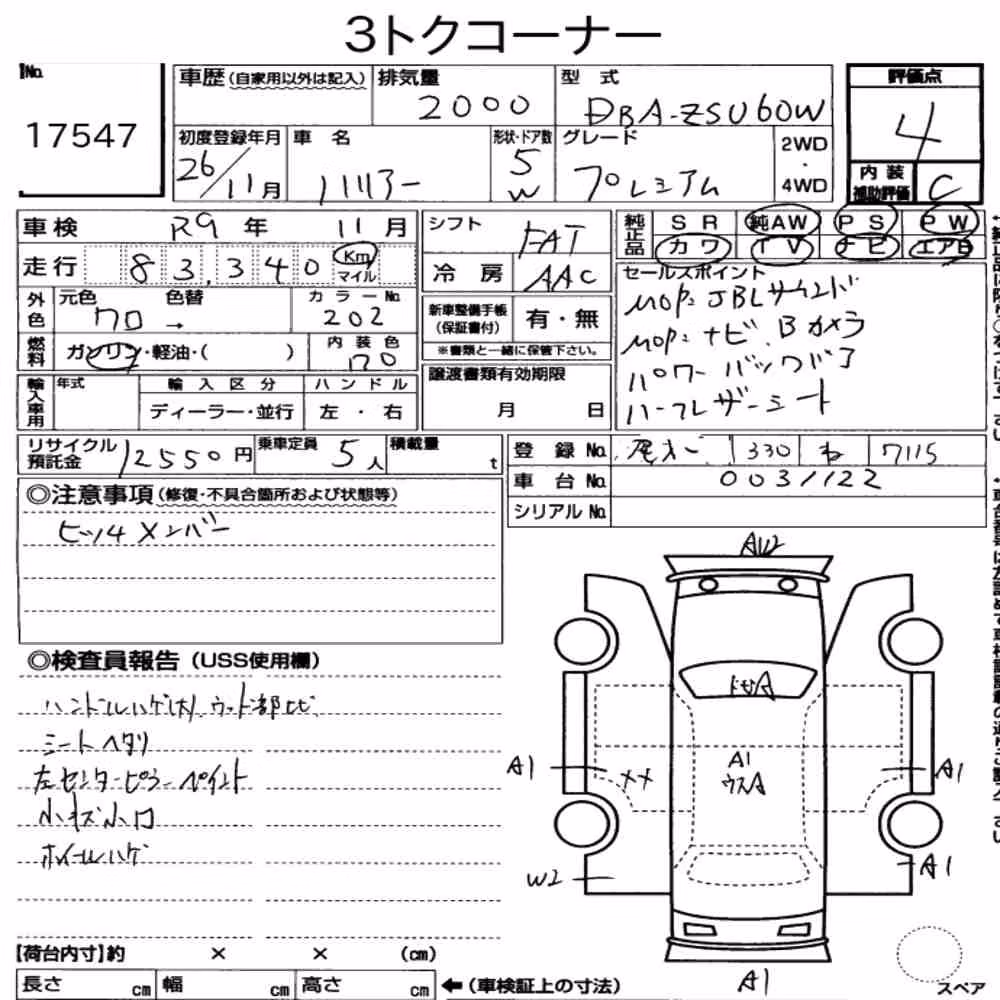 3トクコーナー
No.
17547
車歴(自家用以外は記入)
排気量
2000
型 式
DBA-ZSU60W
評価点
4
初度登録年月
26/11月
車 名
ハリアー
形状・ドア数
5
W
グレード
プレミアム
2WD
・
4WD
内 装
補助評価
C
車検 R9 年 11 月
走行 83,340 Km
マイル
外色
元色 クロ → 色替
カラーNo.
202
燃料
ガソリン・軽油・( )
内 装 色
クロ
輸入車用
年式
輸 入 区 分
ディーラー・並行
ハ ン ド ル
左 ・ 右
シフト FAT
冷 房 AAC
新車整備手帳
(保証書付)
有・無
※書類と一緒に保管下さい。
譲渡書類有効期限
月 日
純正品
SR 純AW PS PW
カワ TV ナビ エアB
セールスポイント
MOP=JBLサウンド
MOP=ナビ.Bカメラ
パワーバックドア
ハーフレザーシート
リサイクル
預託金 12550円
乗車定員 5人
積載量 t
登 録 No. 尾 330 ね 7115
車 台 No. 0031122
シリアル No.
◎注意事項(修復・不具合箇所および状態等)
メンバー
◎検査員報告(USS使用欄)
ハンドルハゲ(大)、ウッド部ヒビ
シートヘタリ
左センターピラーペイント
小キズ小凹
ホイールハゲ
AW2
A
A1
ウスA
A1
××
A1
W2
A1
A1
スペア
【荷台内寸】約 × × (cm)
長さ cm 幅 cm 高さ cm
←(車検証上の寸法)